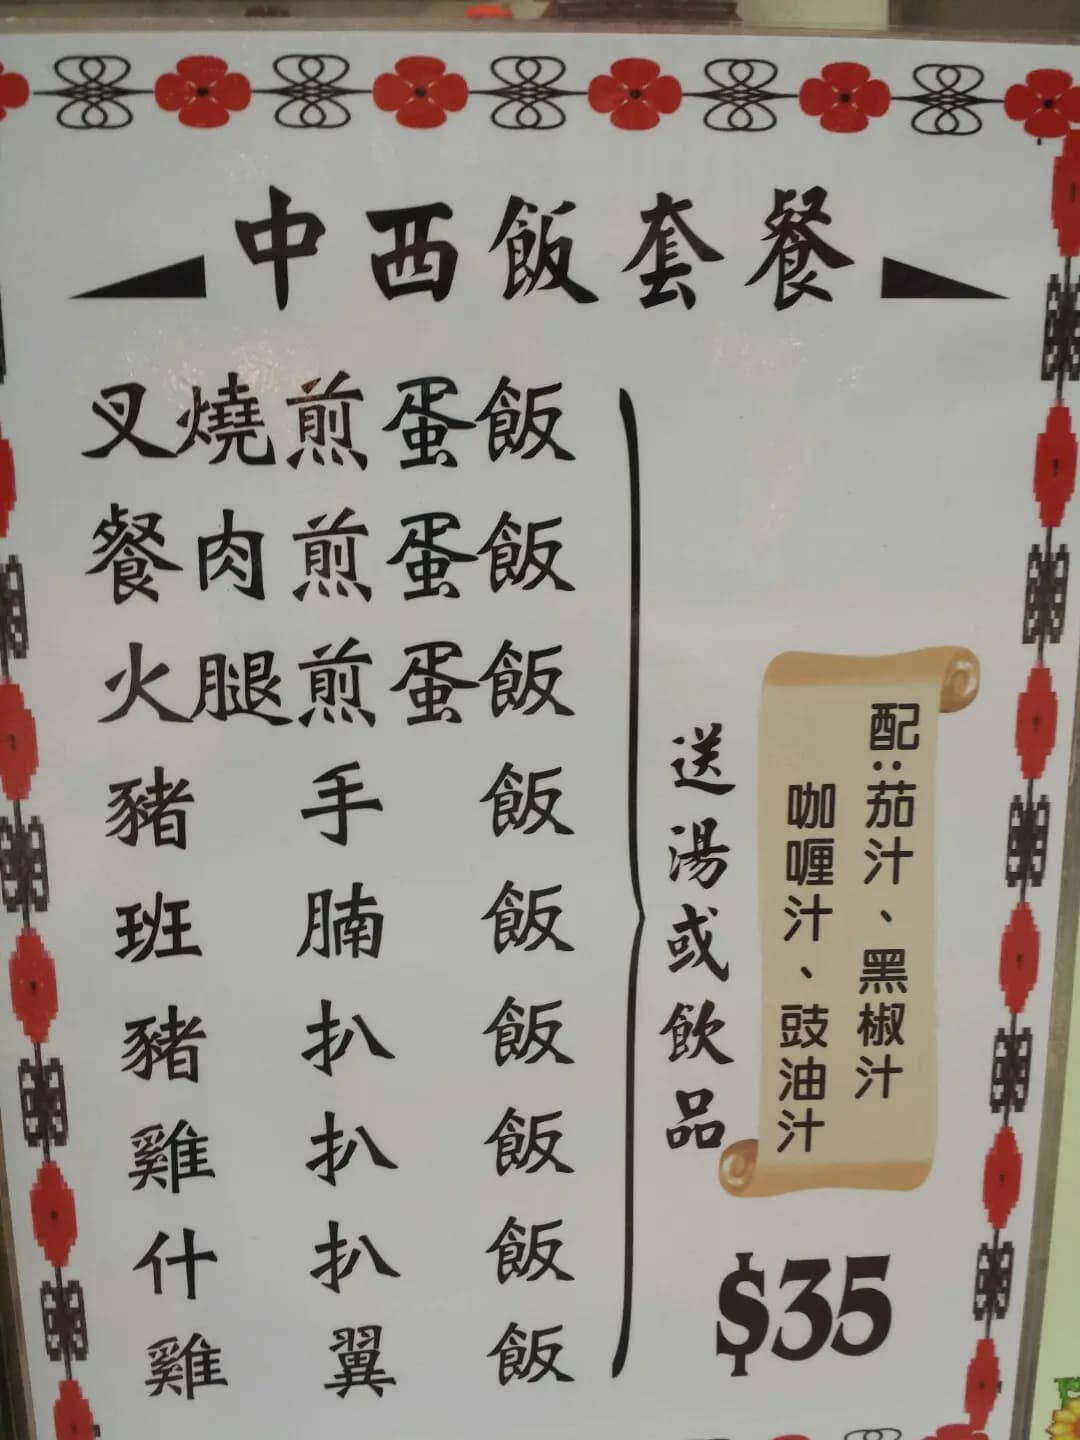 中西飯套餐
叉燒煎蛋飯
餐肉煎蛋飯
火腿煎蛋飯
豬手飯
班腩飯
豬扒飯
雞扒飯
什扒飯
雞翼飯
送湯或飲品
配:茄汁、黑椒汁
咖喱汁、豉油汁
$35